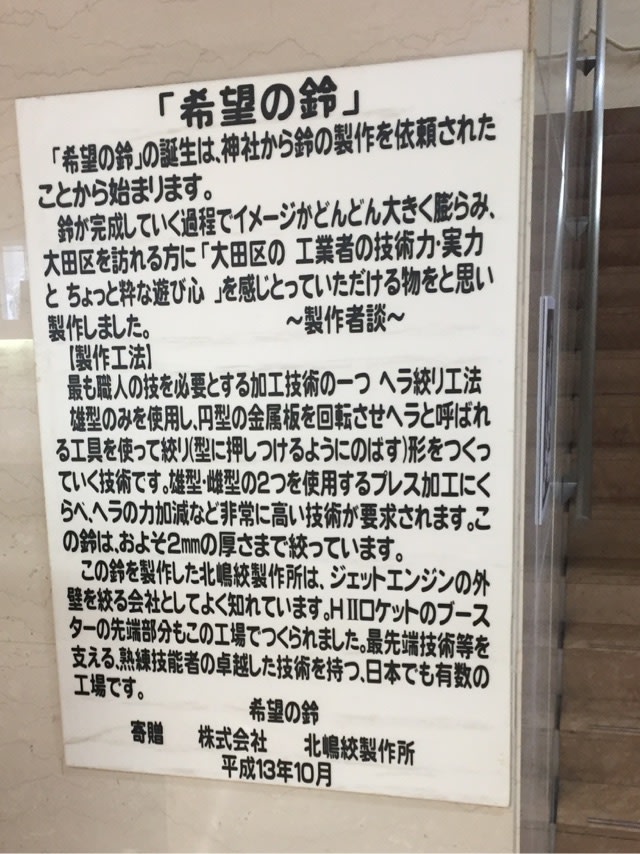 「希望の鈴」
「希望の鈴」の誕生は、神社から鈴の製作を依頼された
ことから始まります。
鈴が完成していく過程でイメージがどんどん大きく膨らみ、
大田区を訪れる方に「大田区の 工業者の技術力・実力
と ちょっと粋な遊び心 」を感じとっていただける物をと思い
製作しました。 〜製作者談〜
【製作工法】
最も職人の技を必要とする加工技術の一つ ヘラ絞り工法
雄型のみを使用し、円型の金属板を回転させヘラと呼ばれ
る工具を使って絞り(型に押しつけるようにのばす)形をつくっ
ていく技術です。雄型・雌型の2つを使用するプレス加工にく
らべ、ヘラの力加減など非常に高い技術が要求されます。こ
の鈴は、およそ2mmの厚さまで絞っています。
この鈴を製作した北嶋絞製作所は、ジェットエンジンの外
壁を絞る会社としてよく知れています。HⅡロケットのブース
ターの先端部分もこの工場でつくられました。最先端技術等を
支える、熟練技能者の卓越した技術を持つ、日本でも有数の
工場です。
希望の鈴
寄贈 株式会社 北嶋絞製作所
平成13年10月